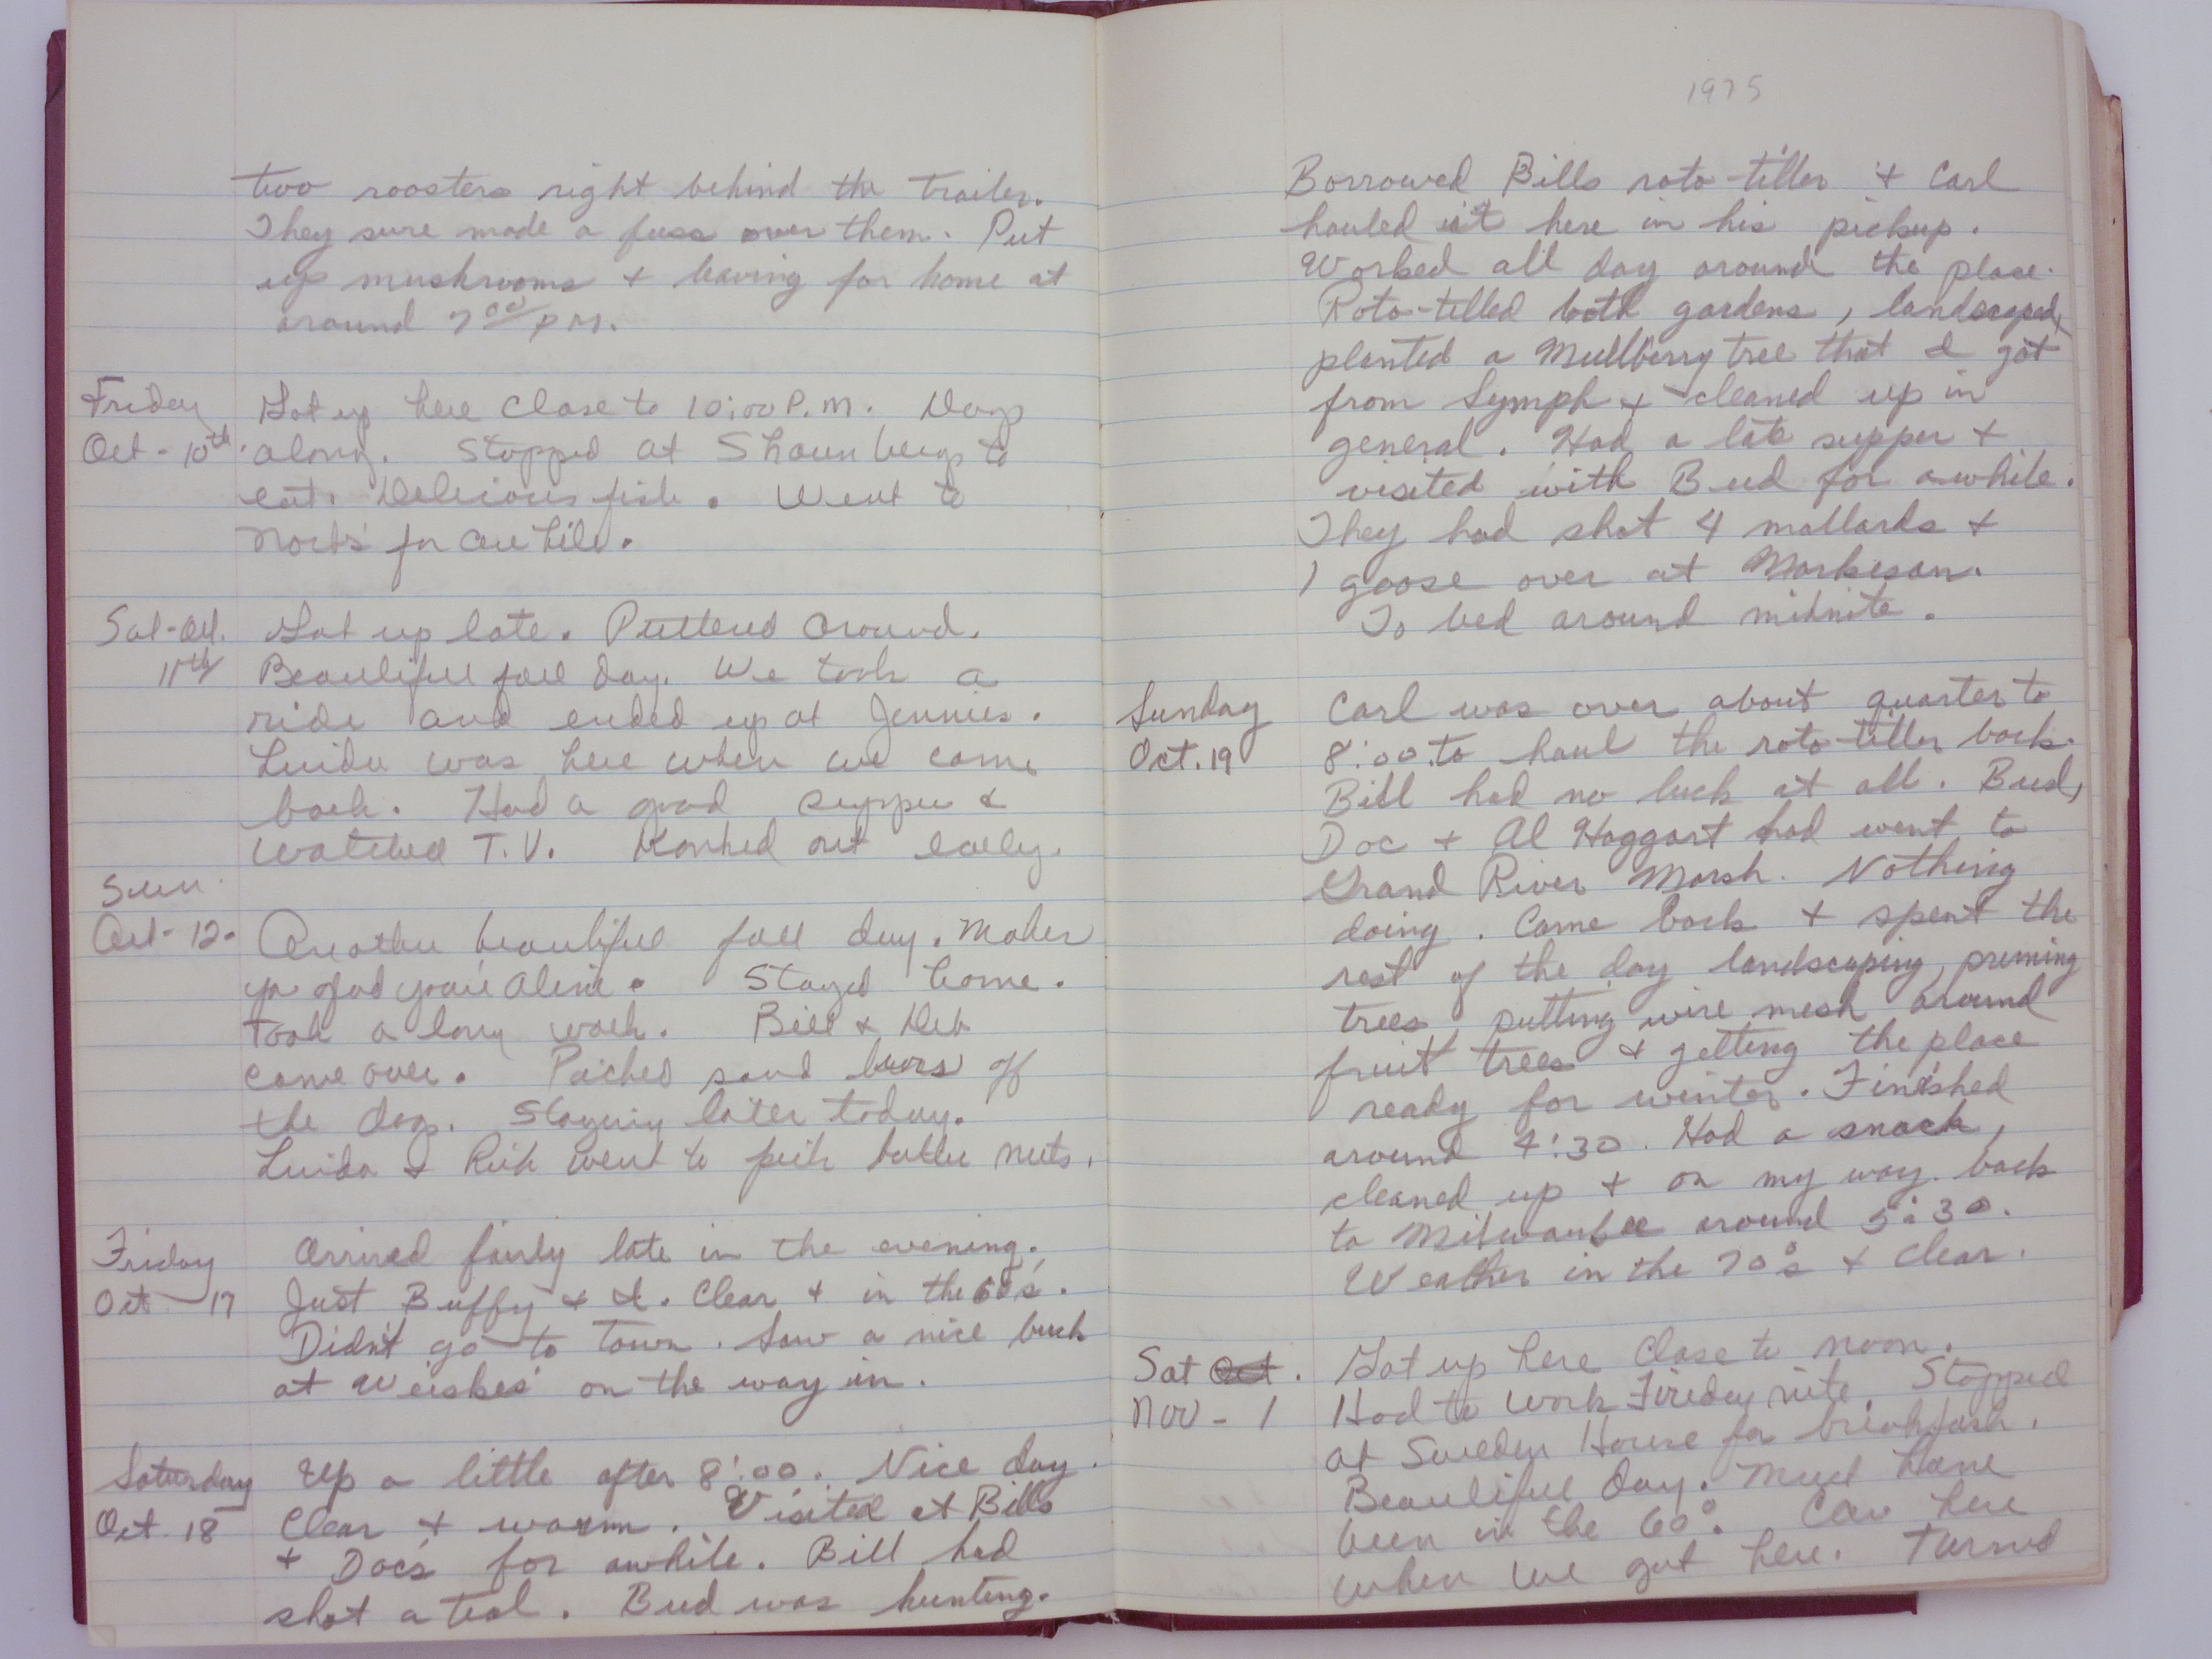 two roosters right behind the trailer.
They sure made a fuss over them. Put
up mushrooms + leaving for home at
around 7 00 P.M.
Friday Got up here close to 10:00 P.M. Dogs
Oct - 10th. along. Stopped at Shaunbergs to
eat. Delicious fish. Went to
Norb's for awhile.
Sat - Oct. Got up late. Puttered around.
11th Beautiful fall day. We took a
ride and ended up at Jennies.
Linda was here when we came
back. Had a good supper &
watched T.V. Konked out early.
Sun
Oct - 12. Another beautiful fall day. Makes
ya glad you're alive. Stayed home.
Took a long walk. Bill & Deb
came over. Picked sand burs off
the dog. Staying later today.
Linda & Rick went to pick butter nuts.
Friday Arrived fairly late in the evening.
Oct - 17 Just Buffy + I. Clear + in the 60's.
Didn't go to town. Saw a nice buck
at Weiskes' on the way in.
Saturday Up a little after 8:00. Nice day.
Oct. 18 Clear + warm. Visited at Bills
+ Doc's for awhile. Bill had
shot a teal. Bud was hunting.
1975
Borrowed Bills roto-tiller + Carl
hauled it here in his pickup.
Worked all day around the place.
Roto-tilled both gardens, landscaped,
planted a Mullberry tree that I got
from Symph + cleaned up in
general. Had a late supper +
visited with Bud for awhile.
They had shot 4 mallards +
1 goose over at Markesan.
To bed around midnite.
Sunday Carl was over about quarter to
Oct. 19 8:00 to haul the roto-tiller back.
Bill had no luck at all. Bud,
Doc + Al Haggart had went to
Grand River Marsh. Nothing
doing. Came back + spent the
rest of the day landscaping, pruning
trees, putting wire mesh around
fruit trees + getting the place
ready for winter. Finished
around 4:30. Had a snack,
cleaned up + on my way back
to Milwaukee around 5:30.
Weather in the 70°s + clear.
Sat Oct. Got up here close to noon.
Nov - 1 Had to work Fireday nite. Stopped
at Sweden House for breakfast.
Beautiful day. Must have
been in the 60°. Car here
when we got here. Turned